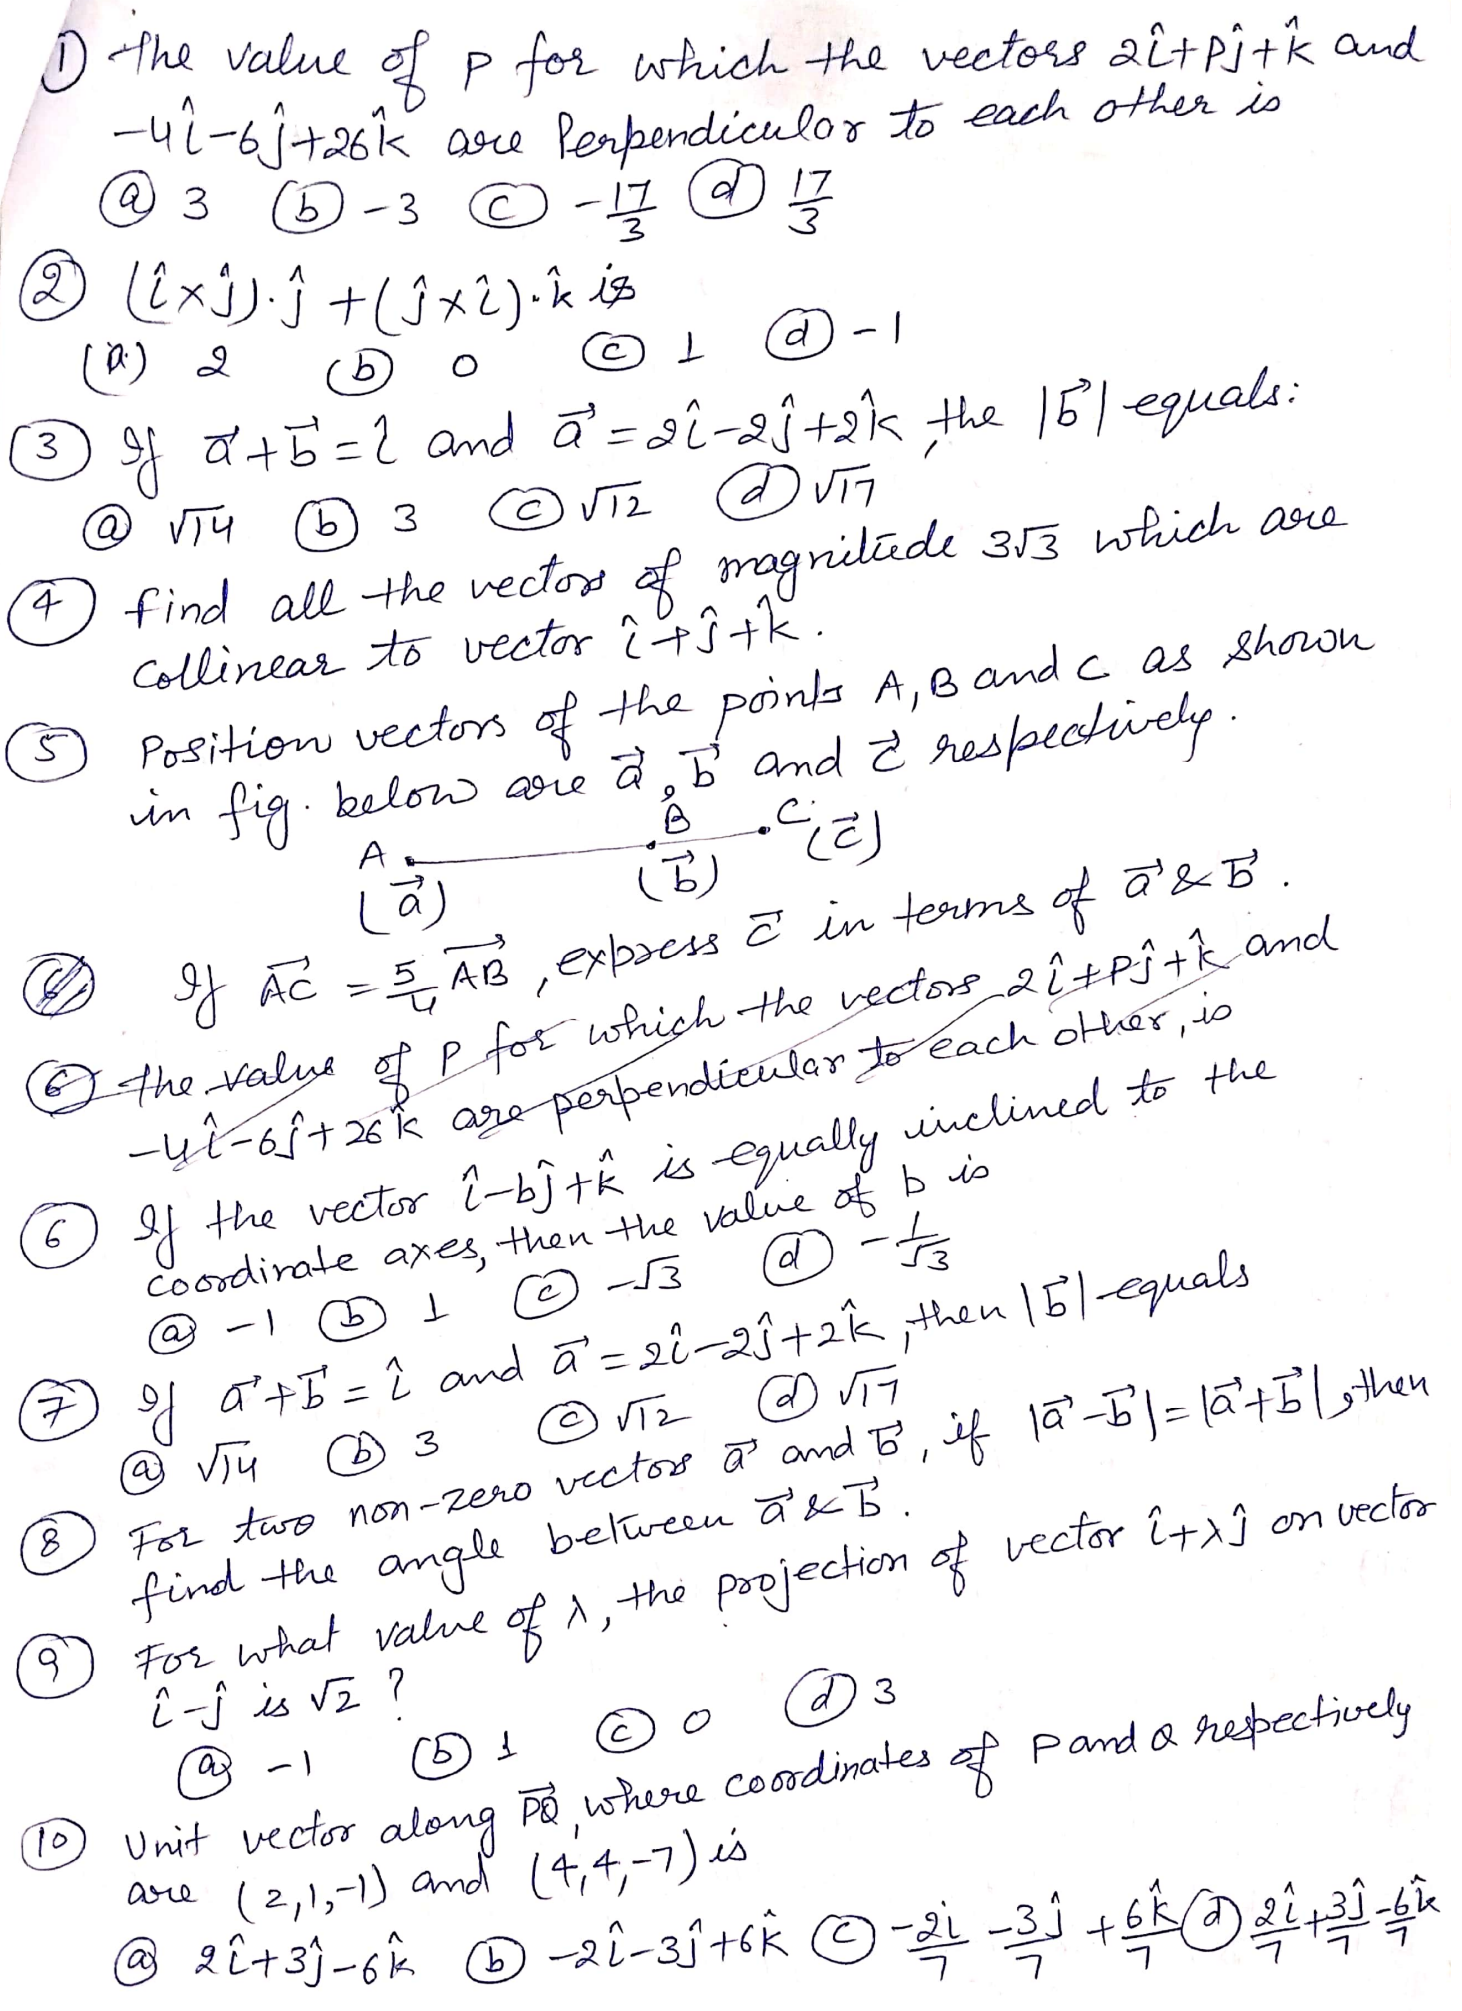 ① The value of P for which the vectors 2î+Pĵ+k̂ and
-4î-6ĵ+26k̂ are Perpendicular to each other is
ⓐ 3 ⓑ -3 ⓒ -17/3 ⓓ 17/3
② (î×ĵ).ĵ +(ĵ×î).k̂ is
(a.) 2 ⓑ 0 ⓒ 1 ⓓ -1
③ If a⃗+b⃗=î and a⃗=2î-2ĵ+2k̂, the |b⃗| equals:
ⓐ √14 ⓑ 3 ⓒ √12 ⓓ √17
④ find all the vectors of magnitude 3√3 which are
Collinear to vector î+ĵ+k̂.
⑤ Position vectors of the points A, B and C as shown
in fig. below are a⃗, b⃗ and c⃗ respectively.
A B C
(a⃗) (b⃗) (c⃗)
If AC⃗ = 5/4 AB⃗, express c⃗ in terms of a⃗ & b⃗.
⑥ The value of P for which the vectors 2î+Pĵ+k̂ and
-4î-6ĵ+26k̂ are perpendicular to each other, is
⑥ If the vector î-bĵ+k̂ is equally inclined to the
coordinate axes, then the value of b is
ⓐ -1 ⓑ 1 ⓒ -√3 ⓓ -1/√3
⑦ If a⃗+b⃗=î and a⃗=2î-2ĵ+2k̂, then |b⃗| equals
ⓐ √14 ⓑ 3 ⓒ √12 ⓓ √17
⑧ For two non-zero vectors a⃗ and b⃗, if |a⃗-b⃗|=|a⃗+b⃗|, then
find the angle between a⃗ & b⃗.
⑨ For what value of λ, the projection of vector î+λĵ on vector
î-ĵ is √2 ?
ⓐ -1 ⓑ 1 ⓒ 0 ⓓ 3
⑩ Unit vector along PQ⃗, where coordinates of P and Q respectively
are (2,1,-1) and (4,4,-7) is
ⓐ 2î+3ĵ-6k̂ ⓑ -2î-3ĵ+6k̂ ⓒ -2î/7 -3ĵ/7 +6k̂/7 ⓓ 2î/7+3ĵ/7-6k̂/7